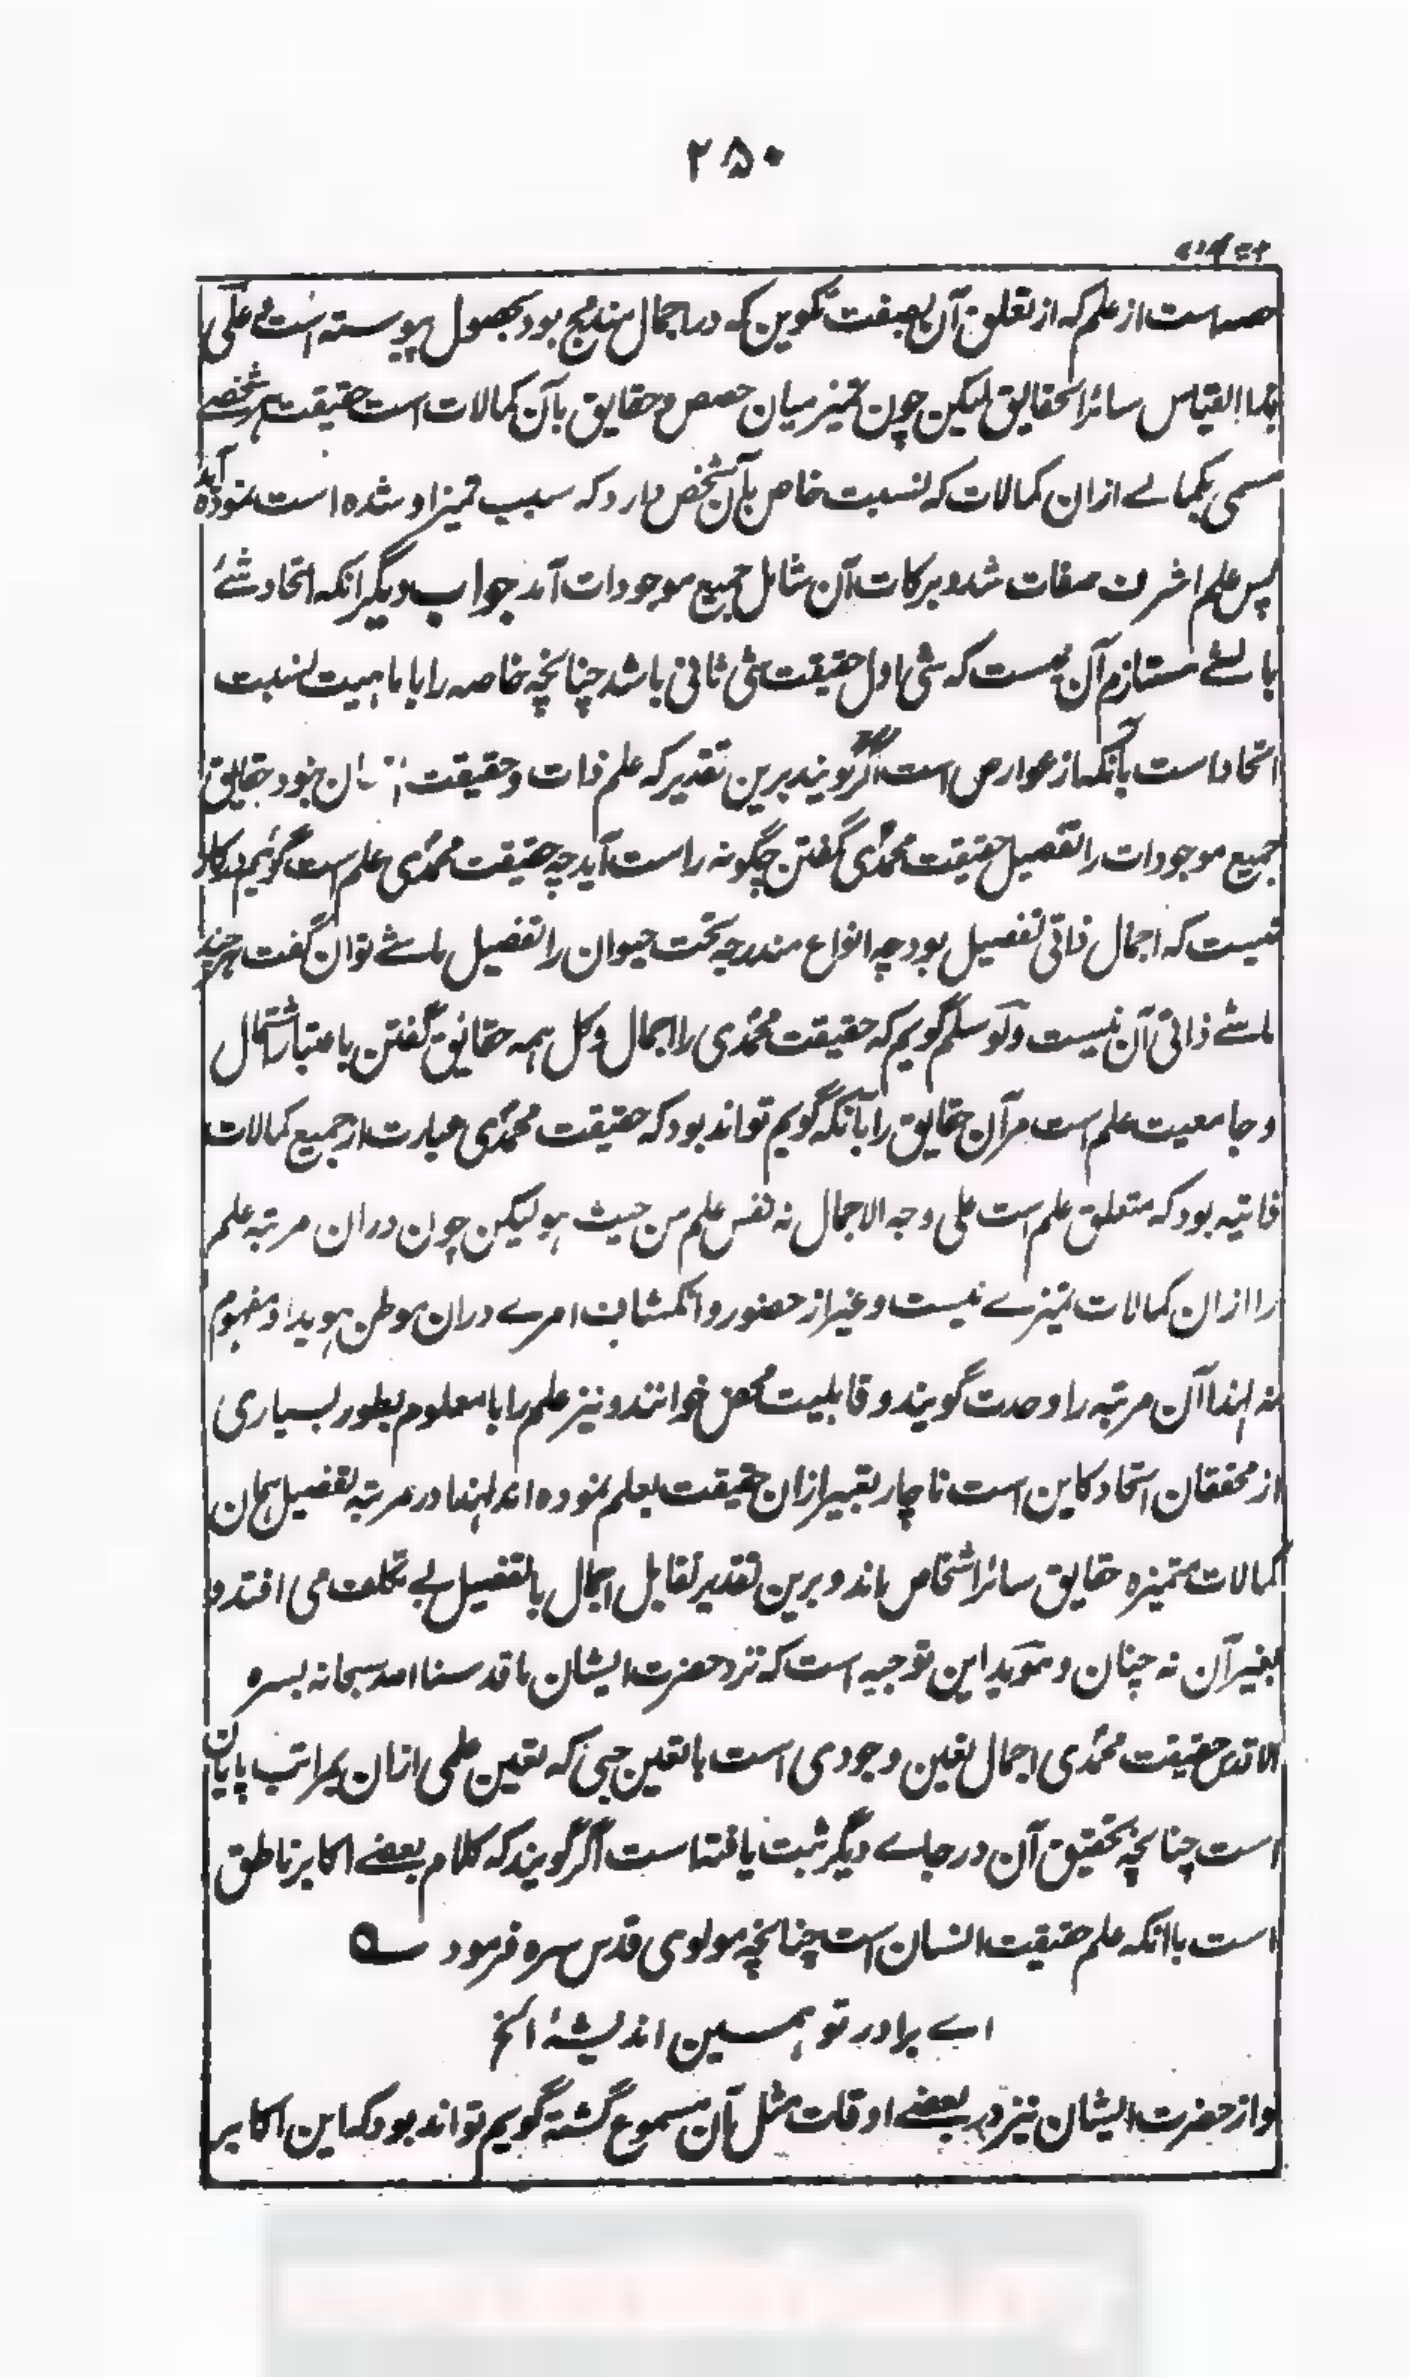 ۲۵۰
حصه است از علم که از تعلق آن بصفت تکوین که در اجمال مندمج بود بحصول پیوسته است و علی
هذا القیاس سائر الحقایق لیکن چون تمیز میان حصص و حقایق بآن کمالات است حقیقت هر شخصے
مسمی بکمالے ازان کمالات که نسبت خاص بآن شخص دارد که سبب تمیز او شده است نموده آید
پس علم اشرف صفات شد و برکات آن شامل جمیع موجودات آمد جواب دیگر انکه اتحاد شئے
بالشئے مستلزم آن نیست که شی اول حقیقت شی ثانی باشد چنانچه خاصه را با ماهیت نسبت
اتحاد است بآنکه از عوارض است اگر گویند برین تقدیر که علم ذات و حقیقت ان نبود حقایق
جمیع موجودات را تفصیل حقیقت محمدی گفتن چگونه راست آید چه حقیقت محمدی علم است گوئیم در کار
نیست که اجمال ذاتی تفصیل بود چه انواع مندرجه تحت حیوان را تفصیل ماشے توان گفت هر چند
ماشے ذاتی آن نیست و لو سلم گویم که حقیقت محمدی را اجمال و کل همه حقایق گفتن باعتبار اشتمال
و جامعیت علم است مر آن حقایق را بآنکه گویم تواند بود که حقیقت محمدی عبارت از جمیع کمالات
ذاتیه بود که متعلق علم است علی وجه الاجمال نه نفس علم من حیث هو لیکن چون دران مرتبه علم
را ازان کمالات تمیزے نیست و غیر از حضور و انکشاف امرے دران موطن هویدا و مفهوم
نه لهذا آن مرتبه را وحدت گویند و قابلیت محض خوانند و نیز علم را با معلوم بطور بسیاری
از محققان اتحاد کاین است ناچار تعبیر ازان حقیقت بعلم نموده اند لهذا در مرتبه تفصیل همان
کمالات متمیزه حقایق سائر اشخاص اند و برین تقدیر تقابل اجمال با تفصیل بے تکلف می افتد و
بغیر آن نه چنان و موید این توجیه است که نزد حضرت ایشان ما قدسنا الله سبحانه بسره
الاقدس حقیقت محمدی اجمال تعین وجودی است یا تعین حبی که تعین علمی ازان بمراتب پایان
است چنانچه تحقیق آن در جاے دیگر ثبت یافته است اگر گویند که کلام بعضے اکابر ناطق
است باانکه علم حقیقت انسان است چنانچه مولوی قدس سره فرمود
اے برادر تو همین اندیشهٔ الخ
و از حضرت ایشان نیز در بعضے اوقات مثل آن مسموع گشته گویم تواند بود که این اکابر